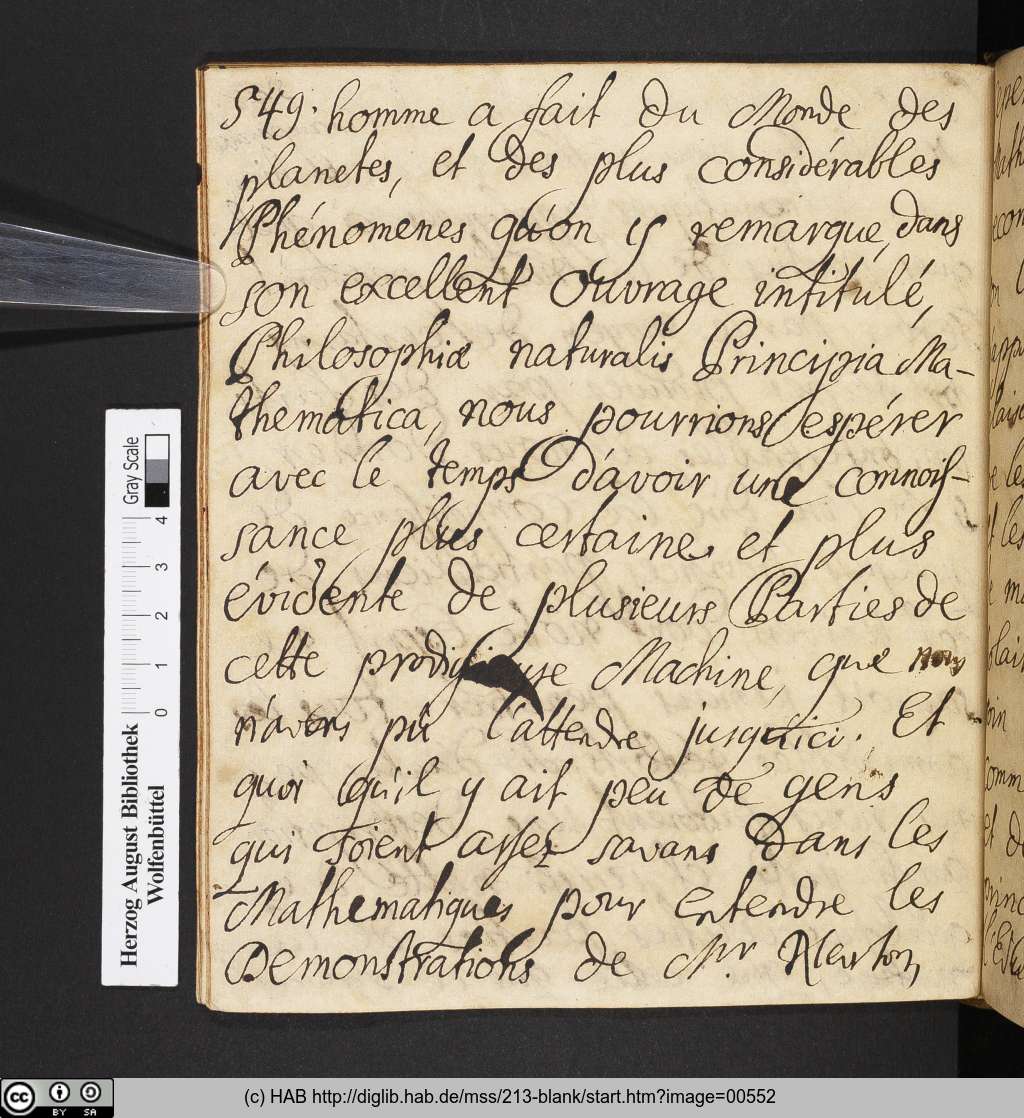 549. homme a fait du Monde des
planetes, et des plus considérables
Phénomenes qu'on y remarque, dans
son excellent Ouvrage intitulé,
Philosophiæ naturalis Principia Ma-
thematica, nous pourrions espérer
avec le temps d'avoir une connois-
sance plus certaine et plus
évidente de plusieurs Parties de
cette prodigieuse Machine, que nous
n'avons pû l'attendre jusqu'ici. Et
quoi qu'il y ait peu de gens
qui soient assez savans dans les
Mathematiques pour entendre les
Demonstrations de Mr. Newton,
Gray Scale
4 3 2 1 0
Herzog August Bibliothek
Wolfenbüttel
cc BY SA
(c) HAB http://diglib.hab.de/mss/213-blank/start.htm?image=00552